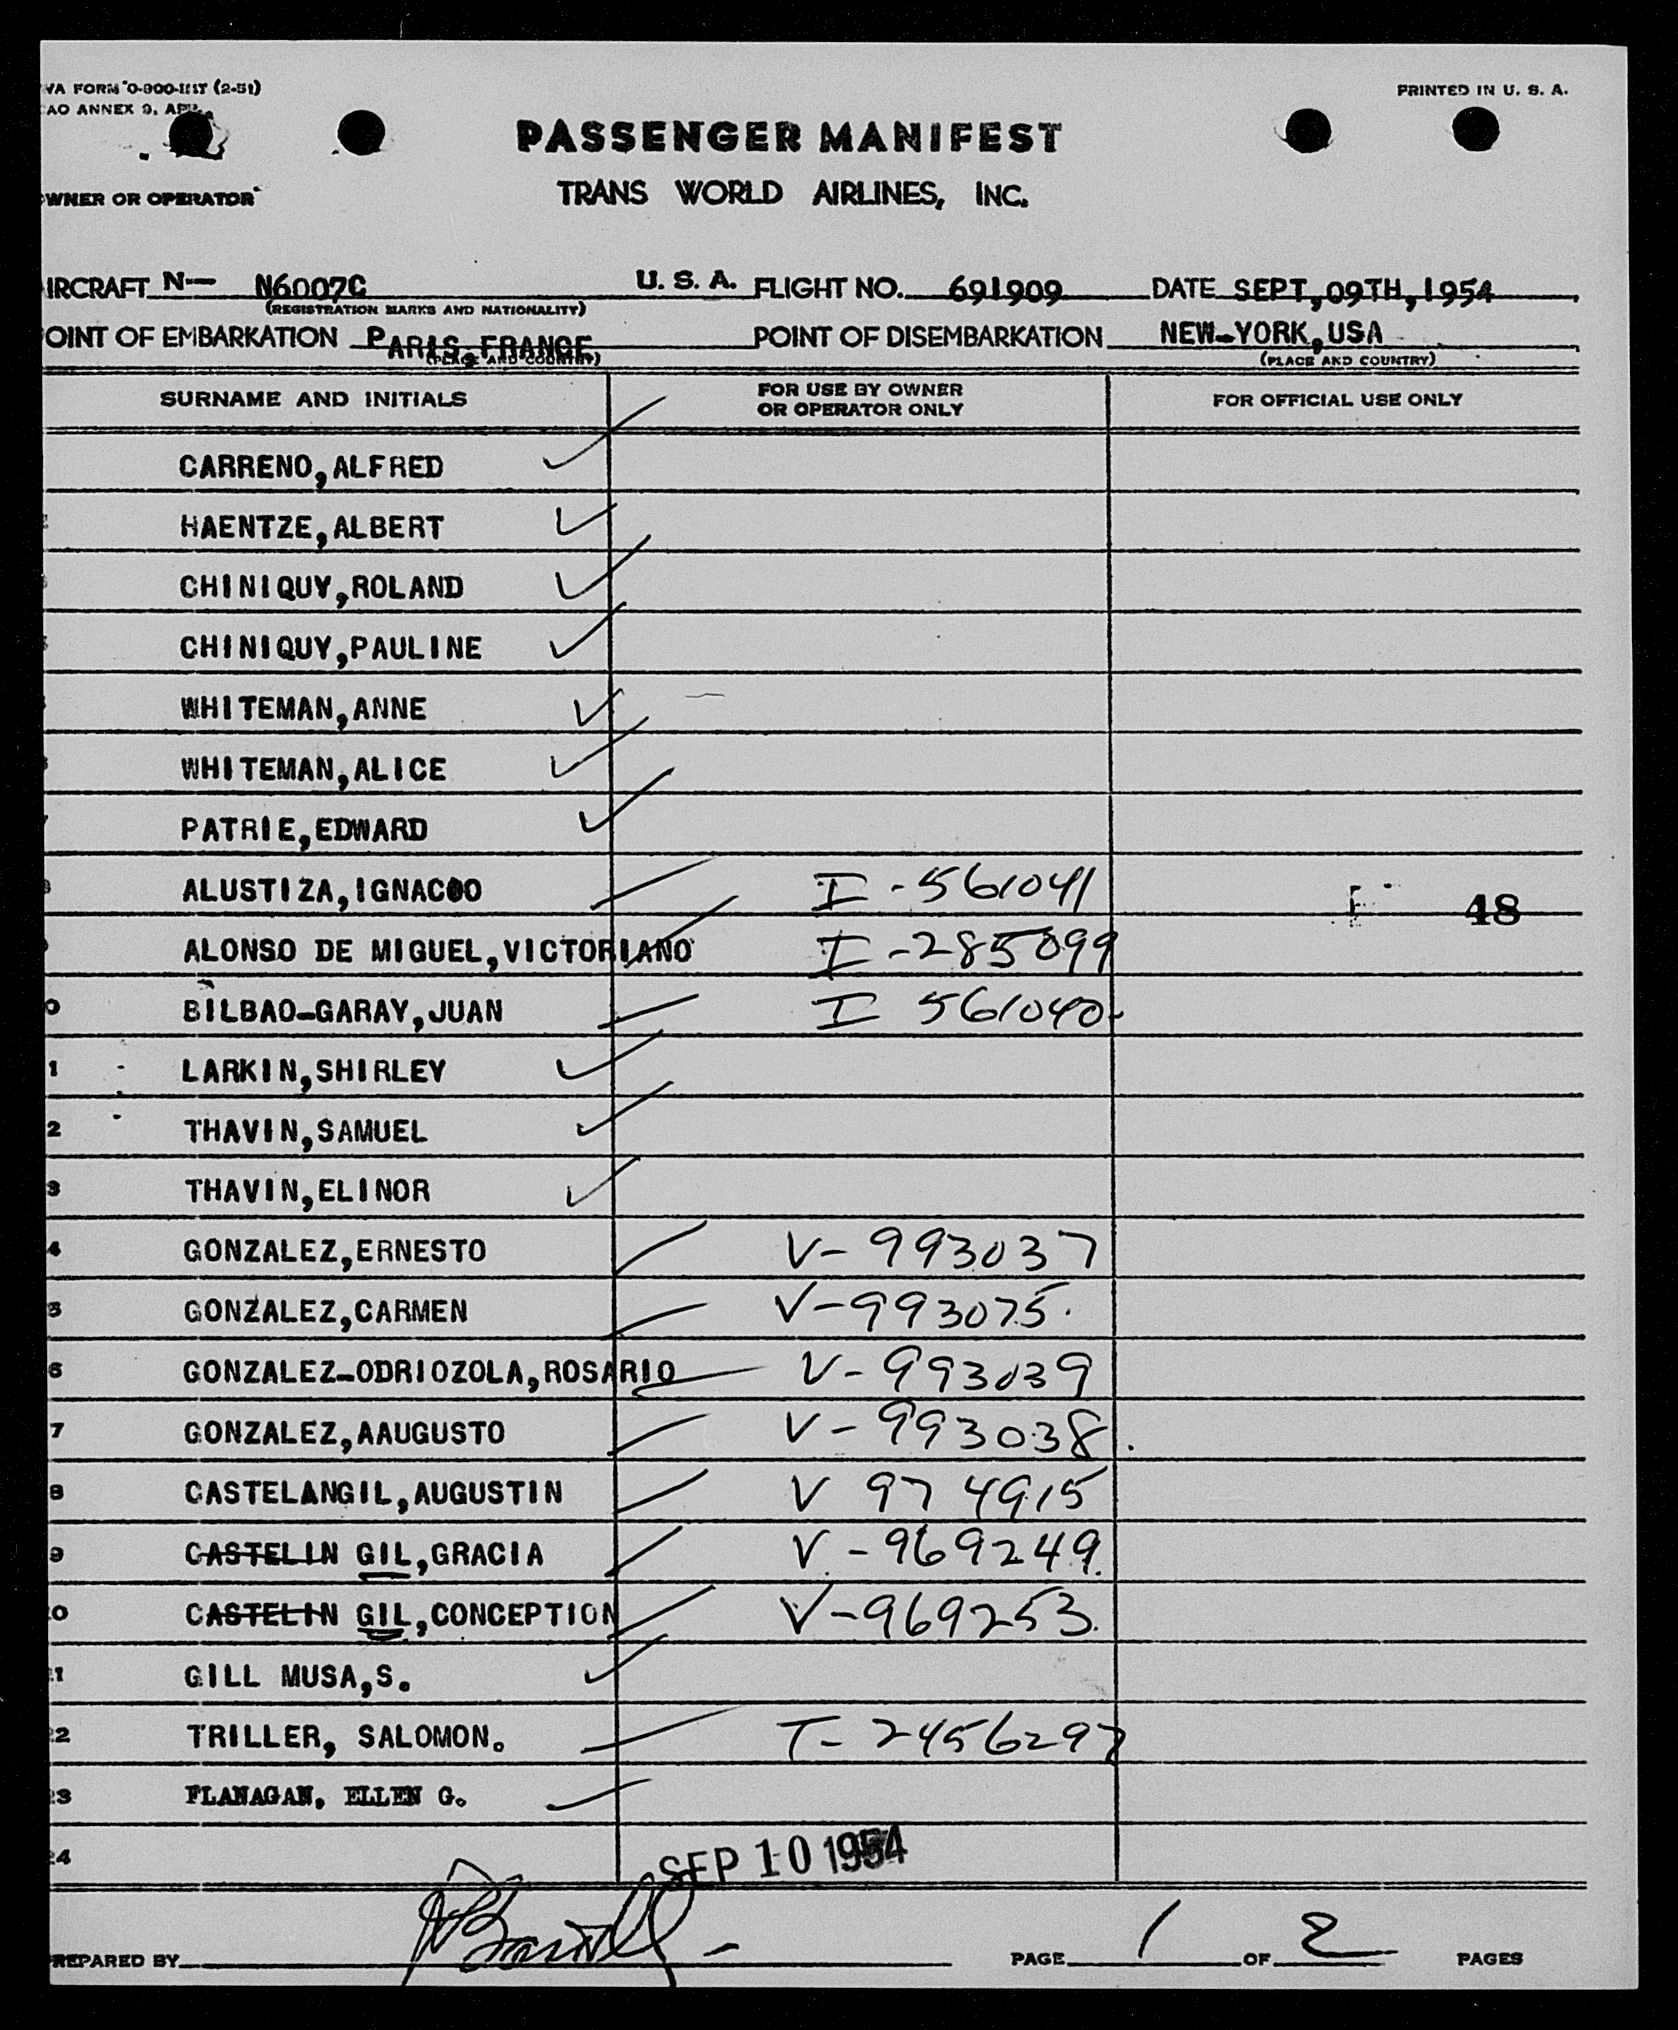 WA FORM O-900-INT (2-51)
PRINTED IN U. S. A.
AO ANNEX 9,
PASSENGER MANIFEST
WNER OR OPERATOR
TRANS WORLD AIRLINES, INC.
IRCRAFT N— N6007C U. S. A. FLIGHT NO. 691909 DATE SEPT,09TH,1954
(REGISTRATION MARKS AND NATIONALITY)
OINT OF EMBARKATION PARIS,FRANCE POINT OF DISEMBARKATION NEW-YORK,USA
(PLACE AND COUNTRY) (PLACE AND COUNTRY)
SURNAME AND INITIALS FOR USE BY OWNER OR OPERATOR ONLY FOR OFFICIAL USE ONLY
CARRENO,ALFRED
HAENTZE,ALBERT
CHINIQUY,ROLAND
CHINIQUY,PAULINE
WHITEMAN,ANNE
WHITEMAN,ALICE
PATRIE,EDWARD
ALUSTIZA,IGNACOO I - 561041 48
ALONSO DE MIGUEL,VICTORIANO I - 285099
0 BILBAO-GARAY,JUAN I 561040
1 LARKIN,SHIRLEY
2 THAVIN,SAMUEL
3 THAVIN,ELINOR
4 GONZALEZ,ERNESTO V- 993037
5 GONZALEZ,CARMEN V-993075.
6 GONZALEZ-ODRIOZOLA,ROSARIO V- 993039
7 GONZALEZ,AAUGUSTO V- 993038.
8 CASTELANGIL,AUGUSTIN V 974915
9 CASTELIN GIL,GRACIA V-969249.
0 CASTELIN GIL,CONCEPTION V-969253.
1 GILL MUSA,S.
2 TRILLER, SALOMON. T- 2456297
3 FLANAGAN, ELLEN G.
4
SEP 10 1954
PREPARED BY PAGE 1 OF 2 PAGES